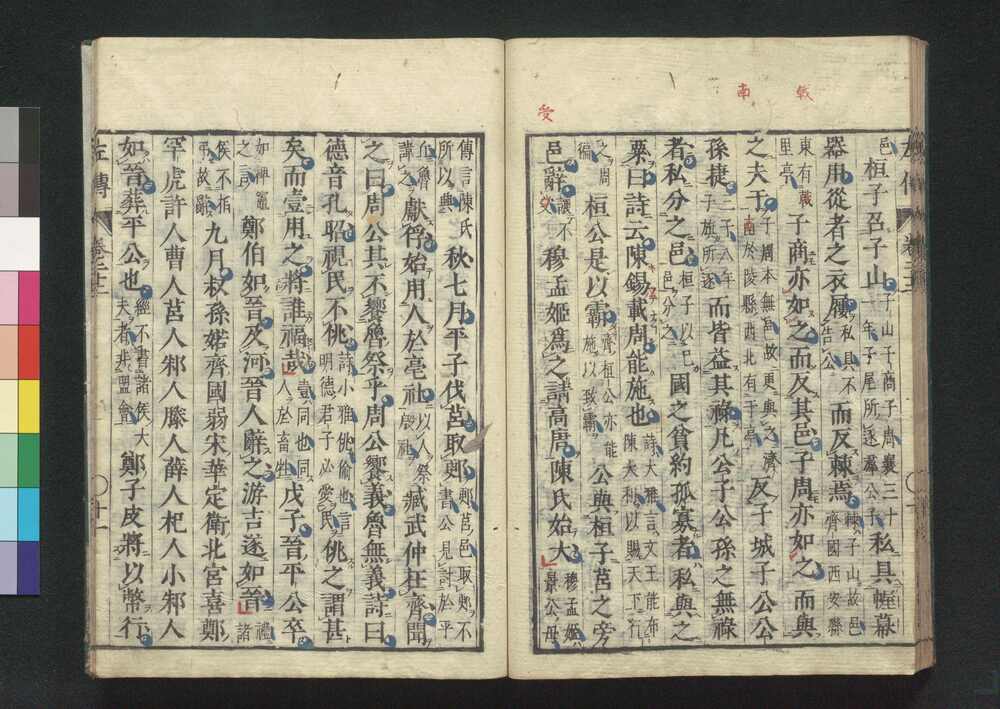 戟
南
受
邑 桓子召子山子山子商子周襄三十一年子尾所逐羣公子私具幄幕
器用從者之衣屨私具不告公而反棘焉棘子山故邑齊國西安縣
東有戟里亭子商亦如之而反其邑子周亦如之而與
之夫于子周本無邑故更與之濟南於陵縣西北有于亭反子城子公公
孫捷三子八年子旗所逐而皆益其祿凡公子公孫之無祿
者私分之邑桓子以已邑分之國之貧約孤寡者私與之
粟曰詩云陳錫載周能施也詩大雅言文王能布陳大利以賜天下行
之周徧桓公是以霸齊桓公亦能施以致霸公與桓子莒之旁
邑辭讓不受穆孟姬爲之請高唐陳氏始大穆孟姬景公母
傳言陳氏所以興秋七月平子伐莒取郠郠莒邑取郠不書公見討於平
丘魯諱之獻俘始用人於亳社以人祭殷社臧武仲在齊聞
之曰周公其不饗魯祭乎周公饗義魯無義詩曰
德音孔昭視民不恌詩小雅恌偷也言明德君子必愛民恌之謂甚
矣而壹用之將誰福哉壹同也同人於畜牲戊子晉平公卒
如禆竈之言鄭伯如晉及河晉人辭之游吉遂如晉禮諸
侯不相弔故辭九月叔孫婼齊國弱宋華定衛北宮喜鄭
罕虎許人曹人莒人邾人滕人薛人杞人小邾人
如晉葬平公也經不書諸侯大夫者非盟會鄭子皮將以幣行
左傳 卷二十二 十一